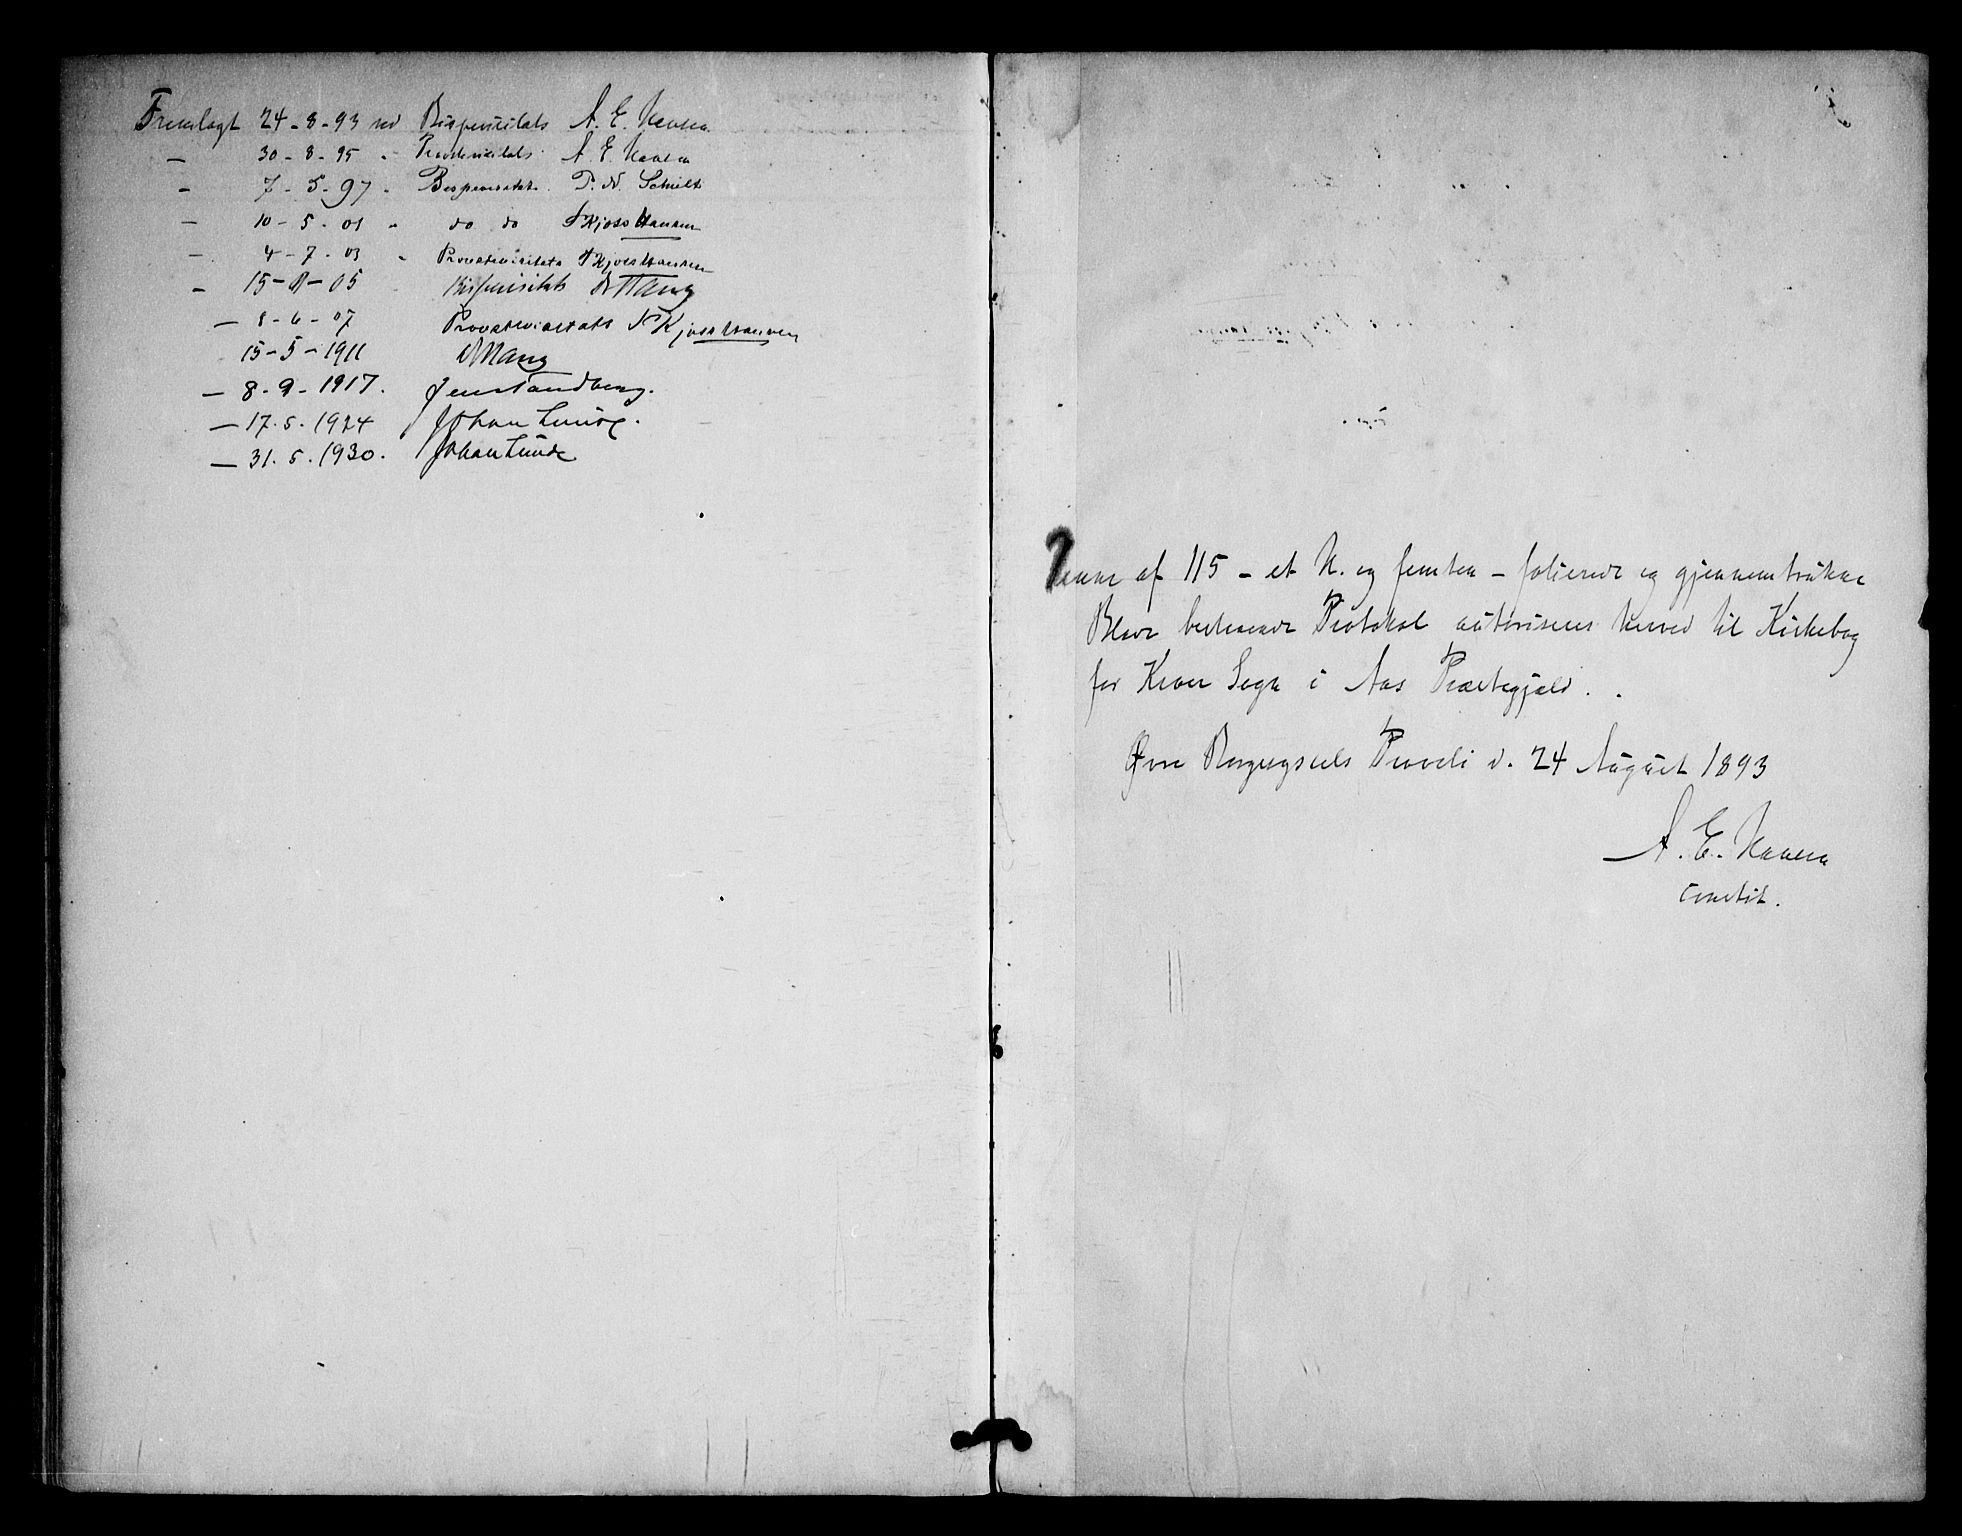 Fremlagt 24-8-93 ved Bispevisitats A. E. Hansen
— 30-8-95 " Provstevisitats A. E. Hansen
— 7-5-97 " Bispevisitats
— 10-5-01 " do do A Kjoss Hansen
— 4-7-03 " Provstevisitats A Kjoss Hansen
— 15-8-05 Bispevisitats
— 8-6-07 Provstevisitats A Kjoss Hansen
15-5-1911
— 8-9-1917. Jens Tandberg.
— 17.5.1924 Johan Lunde.
— 31.5.1930. Johan Lunde
Denne af 115 - et H. og femten - folierede og gjennemtrukne
Blade bestaaende Protokol autoriseres herved til Kirkebog
for Kroer Sogn i Aas Præstegjæld.
Øvre Borgesyssels Provsti d. 24 August 1893
A. E. Hansen
constit.